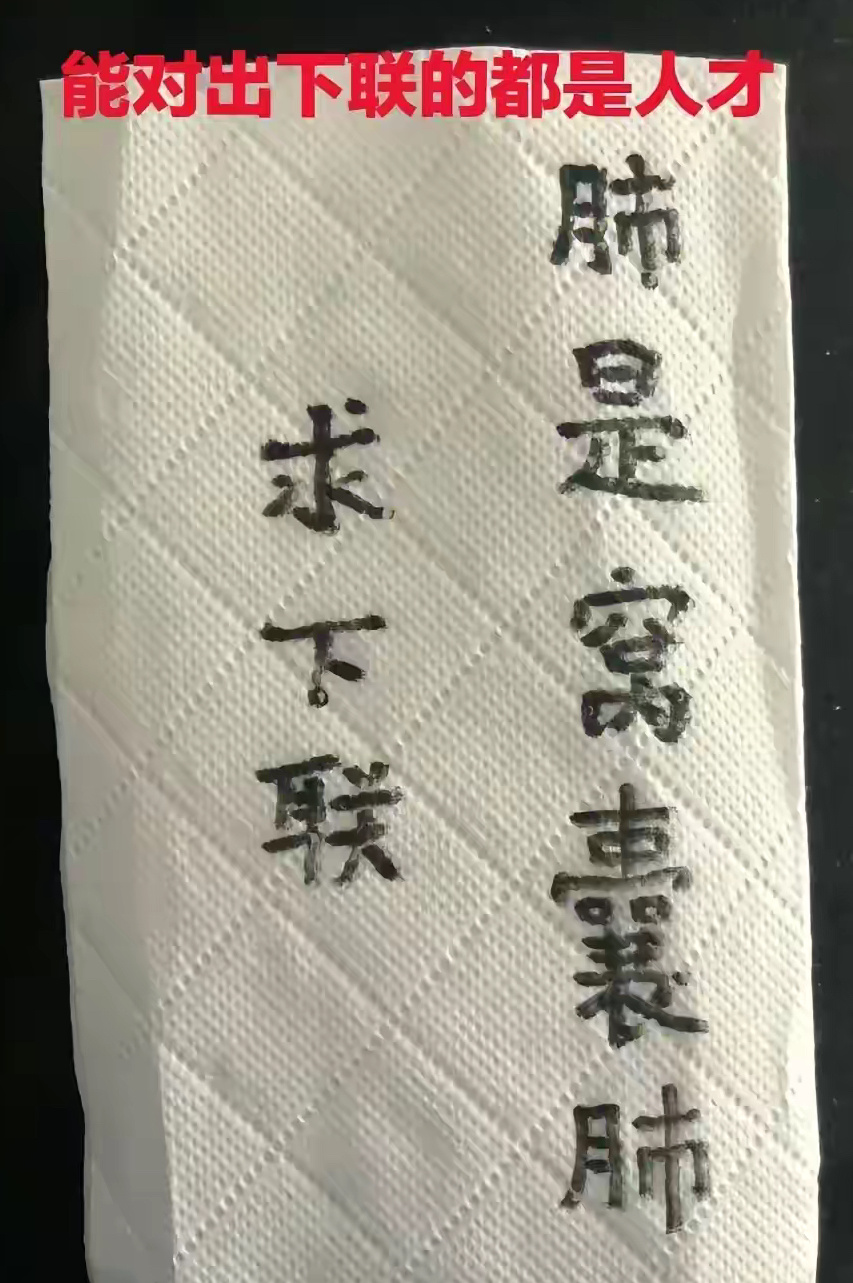 能对出下联的都是人才
肺是窝囊肺
求下联